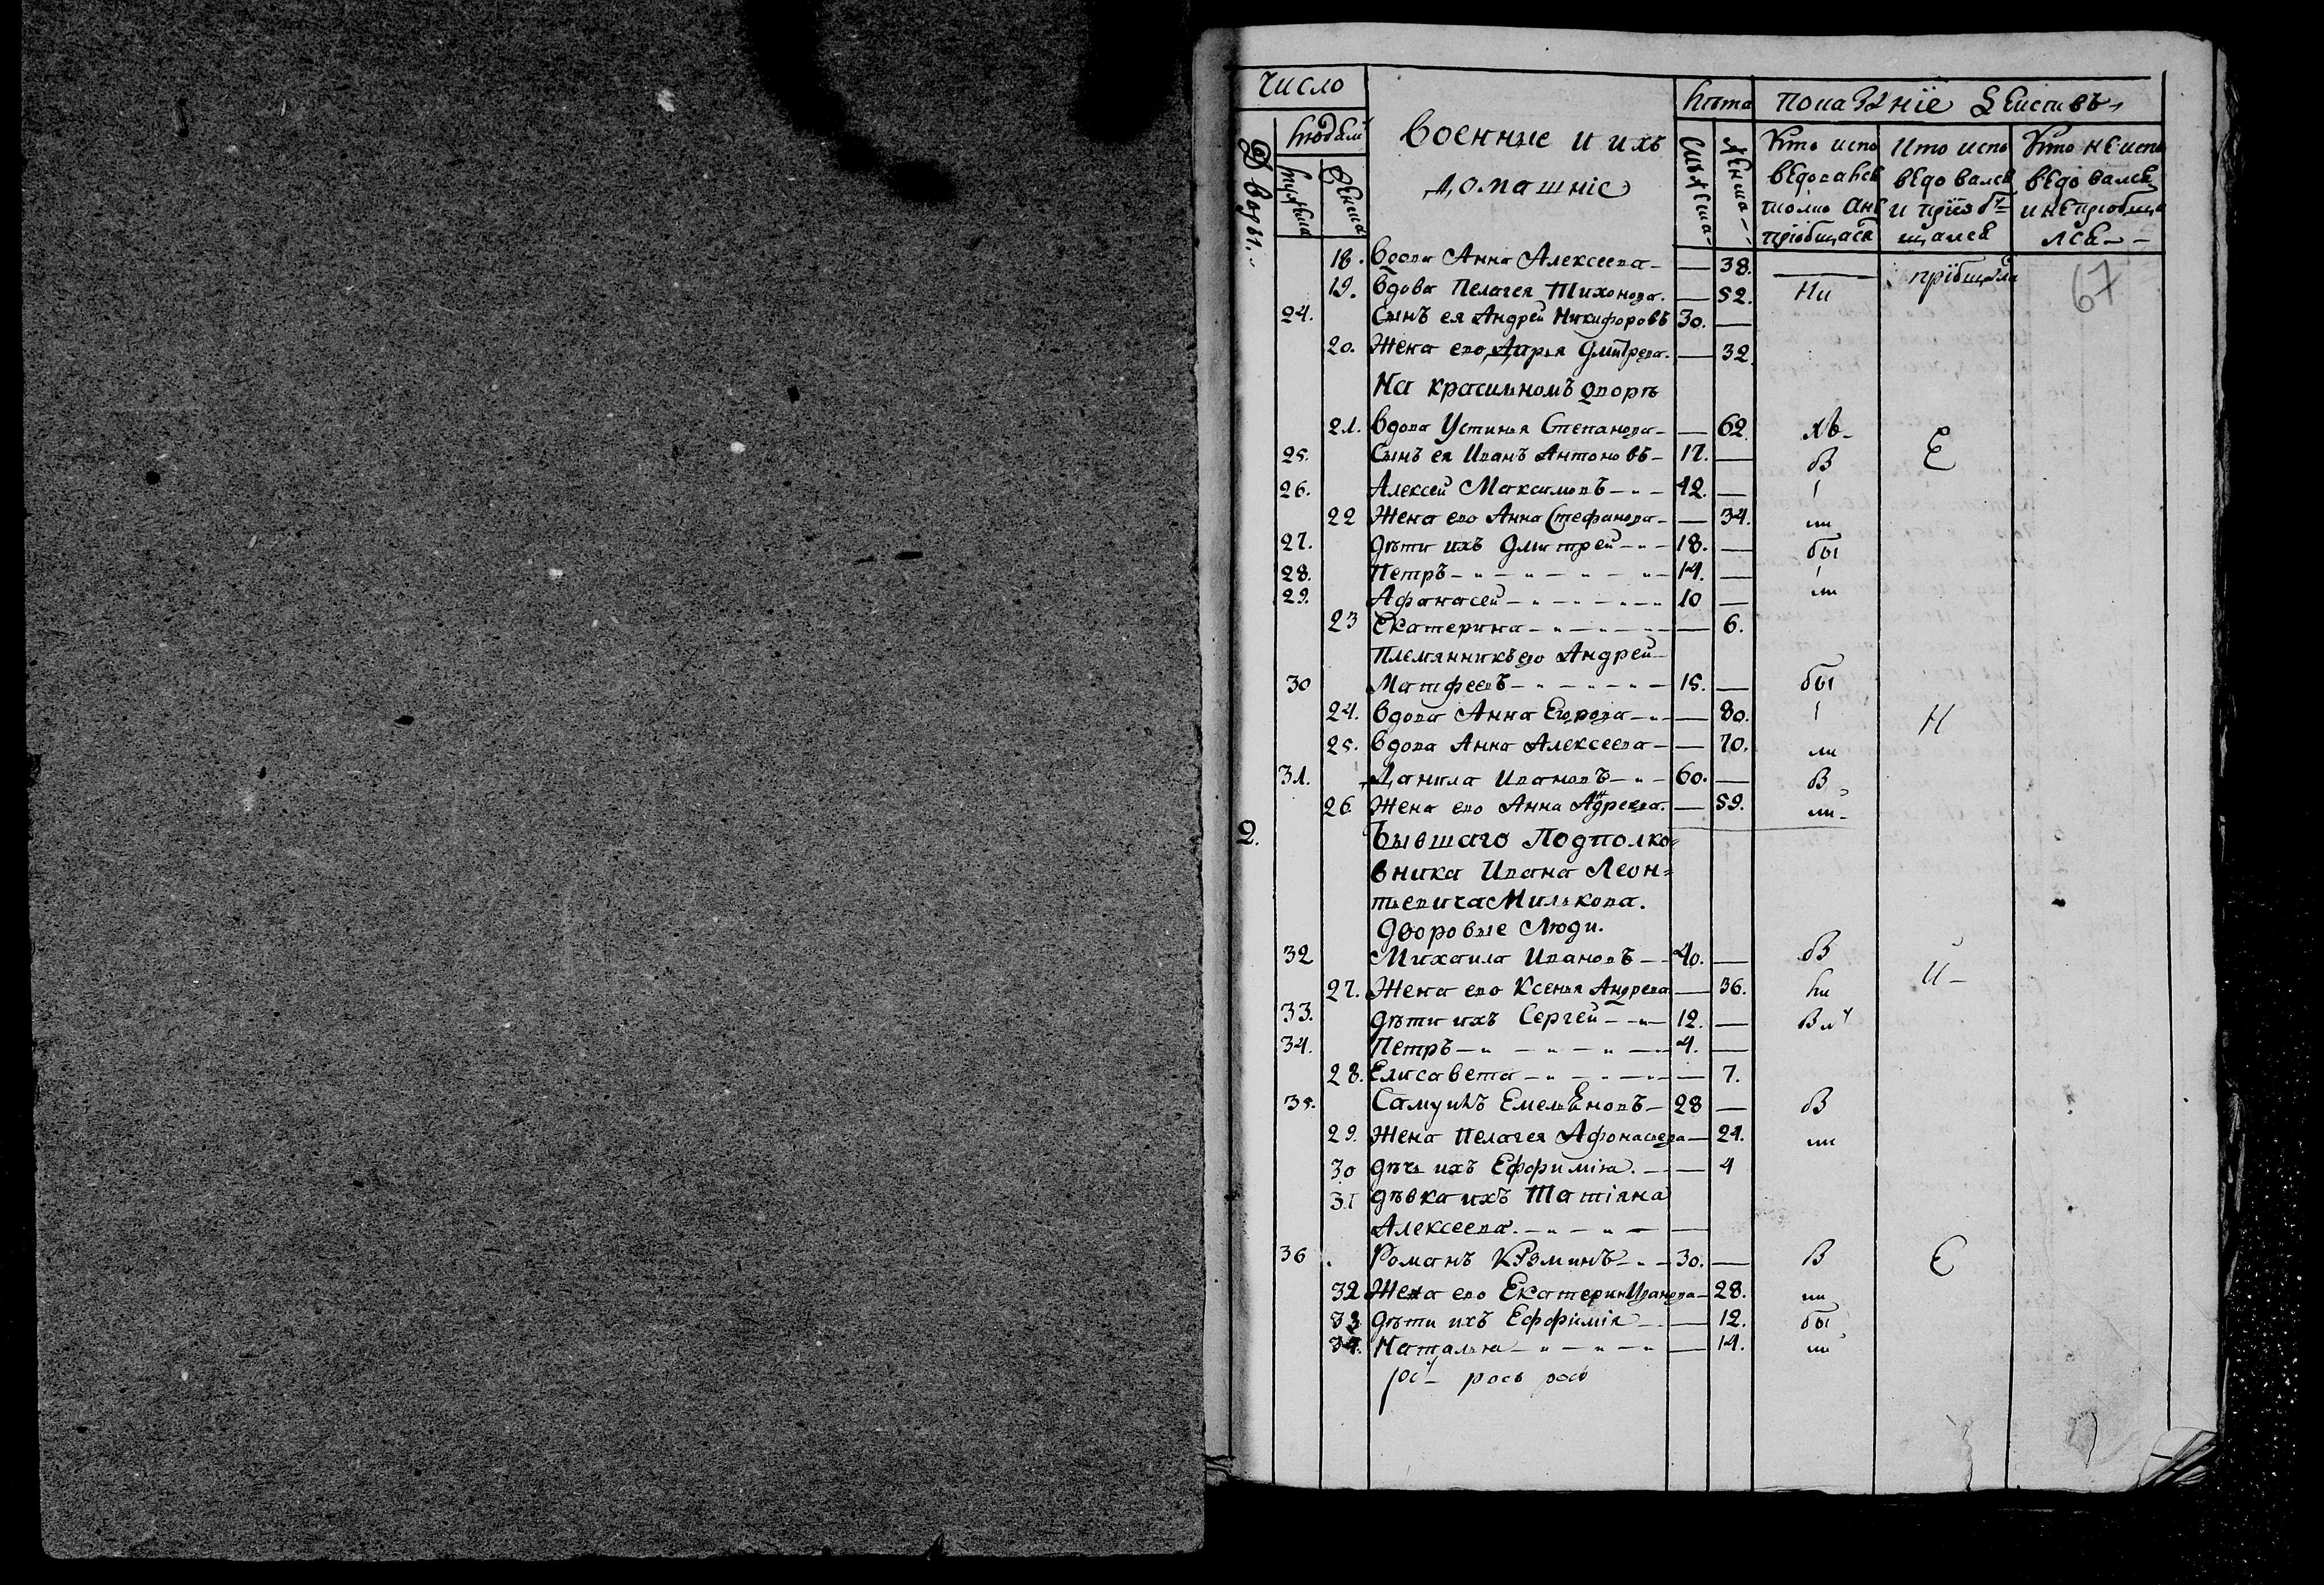 Число
Лѣта
показание действъ
Дворы.
людей
мужеска
женска
военные и ихъ
домашніе
мужеска
женска
Кто испо
ведовался
толко а не
пріобщался
Кто испо
ведовался
и пріоб-
щался
Кто не испо
ведовался
и не пріобща
лся
18. вдова Анна Алексеева — 38. — пріобщала
67
19. вдова Пелагея Тихонова. — 52. Ни
24. Сынъ ея Андрей Никифоровъ 30. —
20. Жена его Дарья Дмитрева. — 32.
На красильномъ дворѣ
21. вдова Устинья Степанова — 62.
25. Сынъ ея Иванъ Антоновъ — 17. — В Е
26. Алексей Максимовъ — 42. —
22 Жена его Анна Стефанова — 34. ли
27. Дѣти ихъ Дмитрей — 18. — бы
28. Петръ — 14. —
29. Афанасей — 10 — ли
23 Екатерина — 6.
Племянникъ его Андрей —
30 Матфеевъ — 15. — бы
24. вдова Анна Егорова — 80. Н
25. вдова Анна Алексеева — 70. ли
31. Данила Ивановъ — 60. — В
26 Жена его Анна Андреева. — 59. ли
2. Бывшаго Подполко=
вника Ивана Леон=
тьевича Милькова.
Дворовые Люди.
32 Михаила Ивановъ — 40. — В
27. Жена его Ксенья Андрева — 36. ли И —
33. Дѣти ихъ Сергей — 12. —
34. Петръ — 4. —
28. Елисавета — 7.
35. Самуилъ Емельеновъ — 28 — В
29. Жена Пелагея Афонасьева — 24. ли
30 Дѣчь ихъ Еффимія. — 4
31 Дѣвка ихъ Татіяна
Алексеева. —
36 Романъ Козминъ — 30. — В Е
32 Жена его Екатерин Иванова — 28. ли
33 Дѣти ихъ Еффимія — 12. бы
34. Наталья — 14. ли